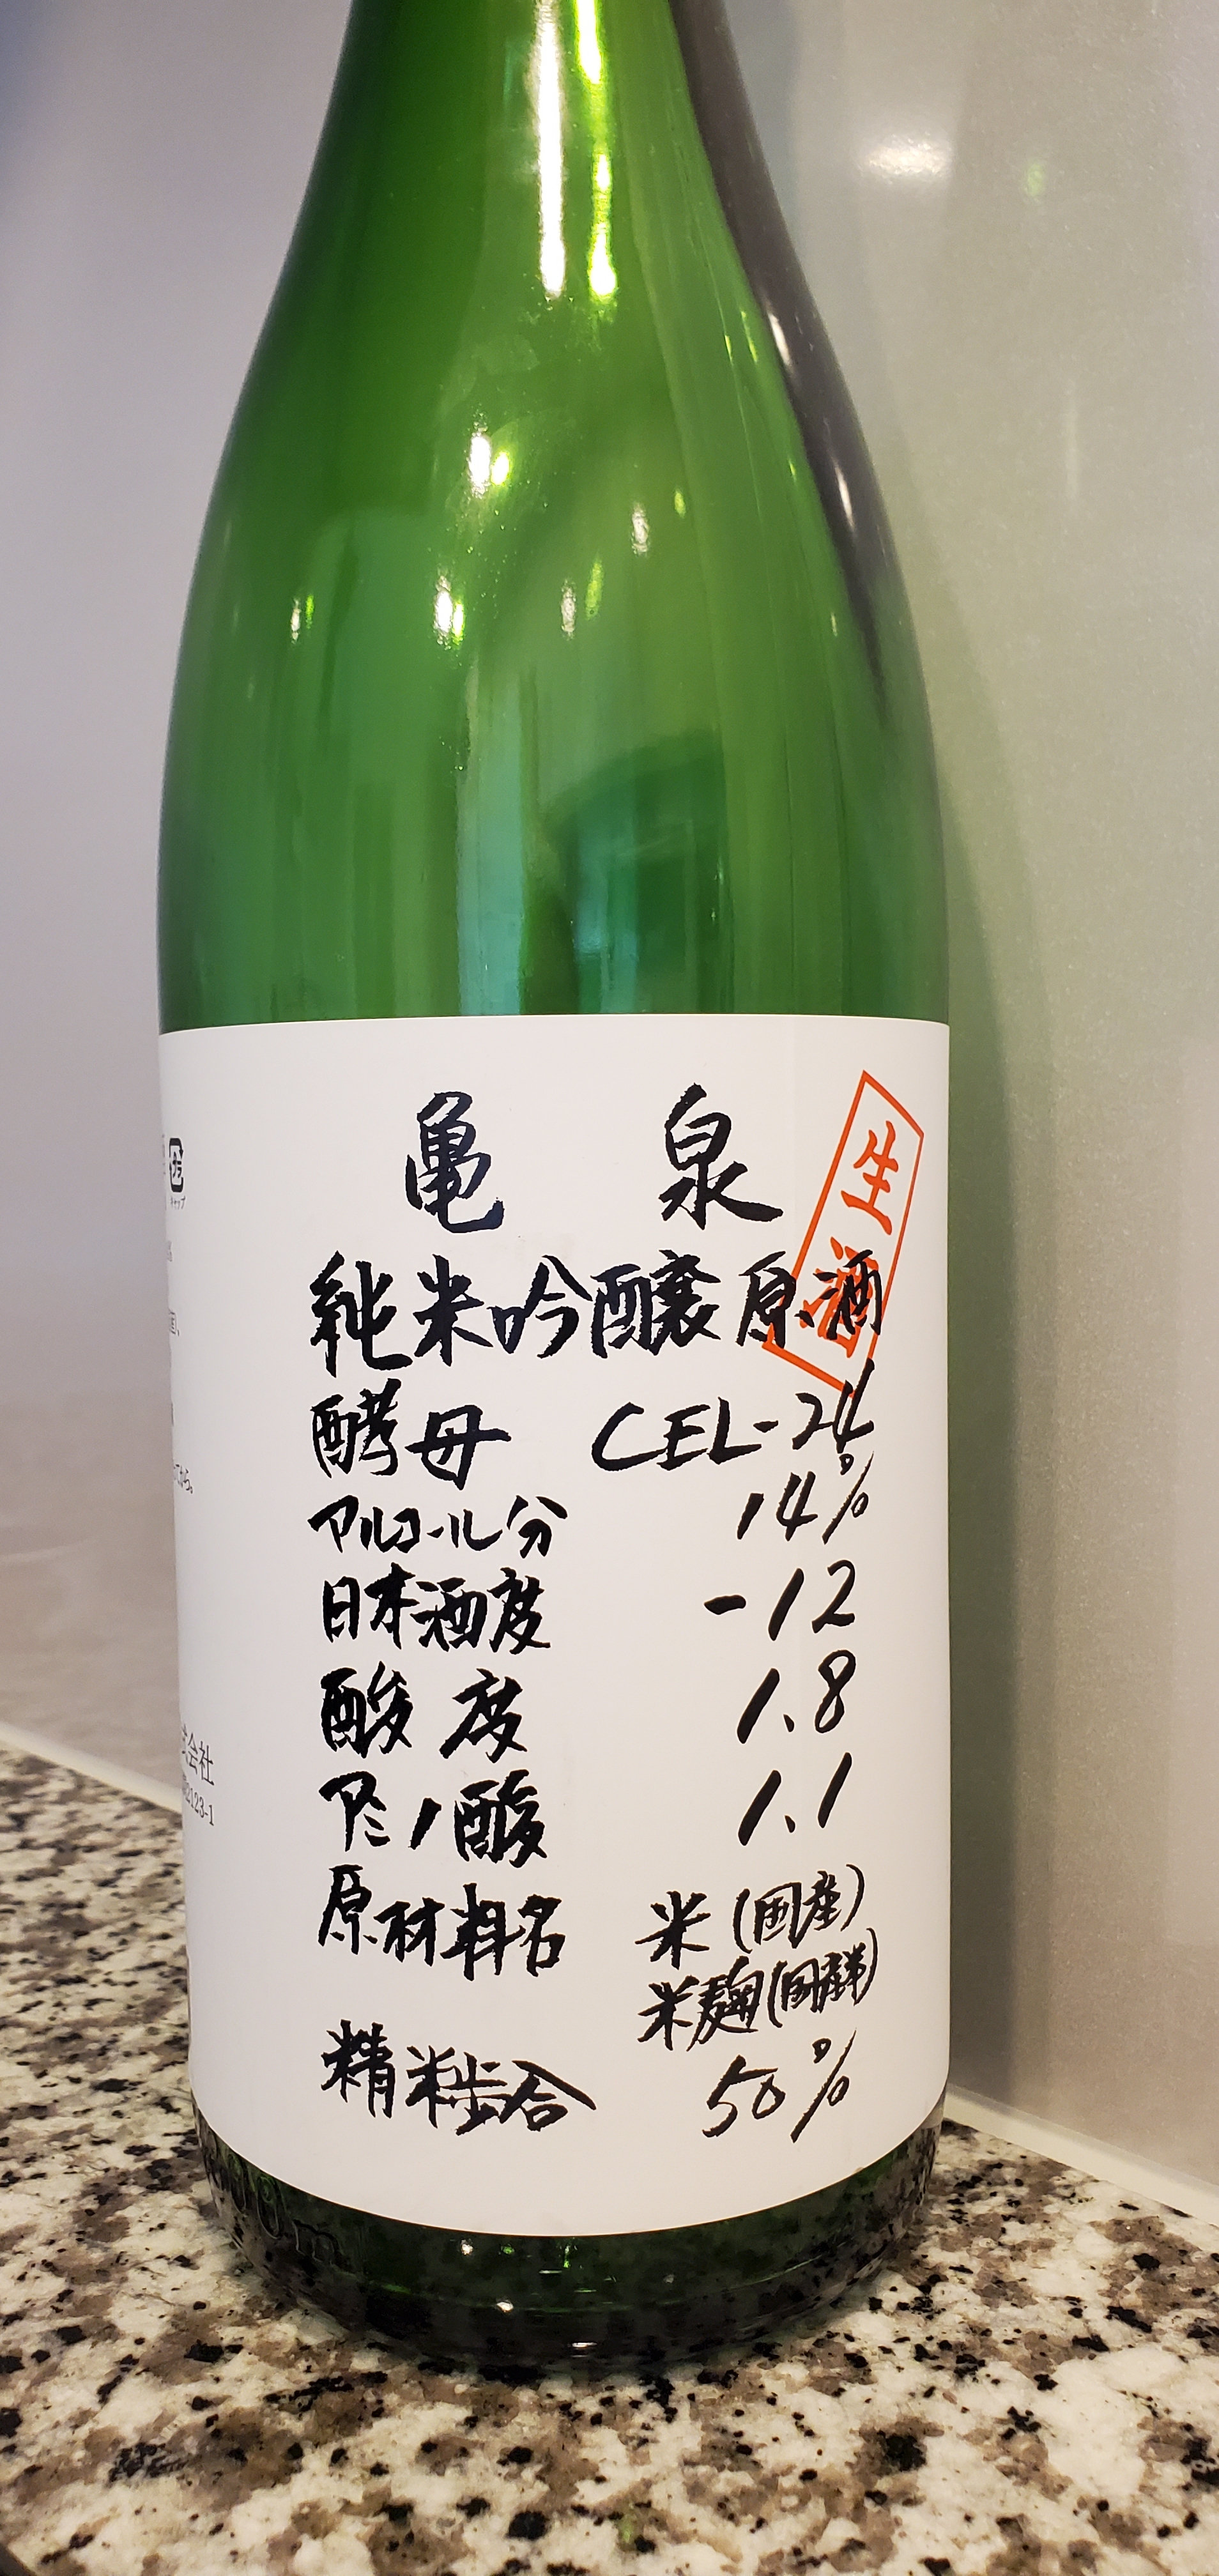 亀泉
生酒
純米吟醸原酒
酵母 CEL-24
アルコール分 14%
日本酒度 -12
酸度 1.8
アミノ酸 1.1
原材料名 米(国産)
米麹(国産米)
精米歩合 50%
キャップ
てから。
式会社
2123-1